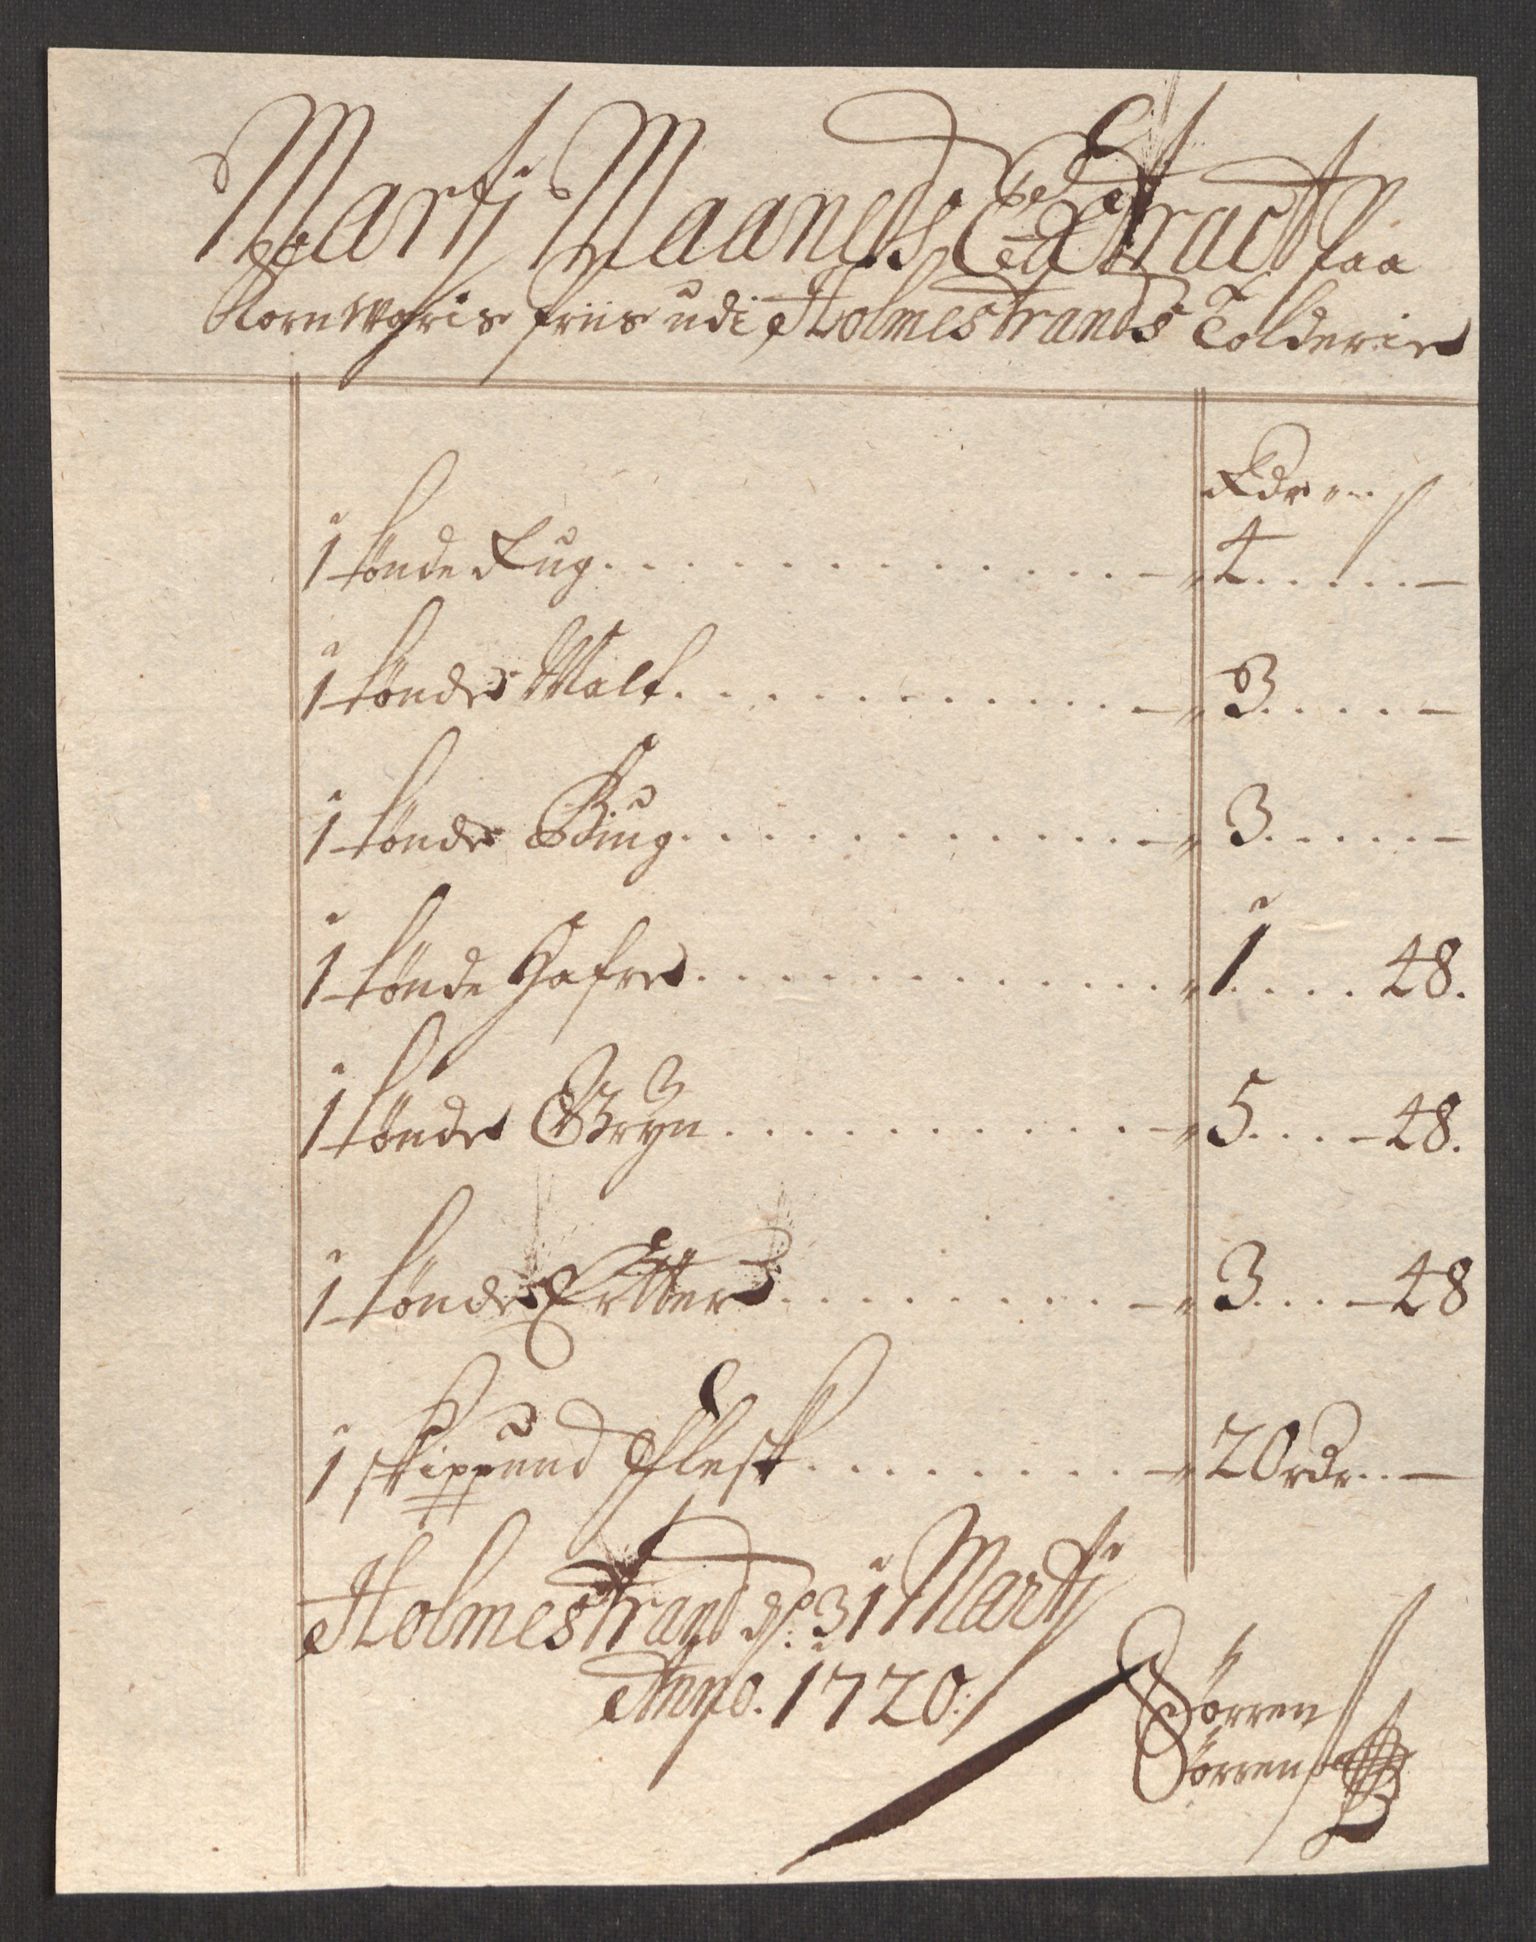 Martj Maaneds Extract paa
Korn Waris priis udi Holmestrands Tolderie
Rdr
1 tönde Rug . . . . 4 . . . . —
1 tönde Malt . . . . 3 . . . . —
1 tönde Biug . . . . 3 . . . . —
1 tönde Hafre . . . . 1 . . . . 48.
1 tönde Gryn . . . . 5 . . . . 48.
1 tönde Ertter . . . . 3 . . . . 48
1 skippund Flesk . . . . 20 rdr . . —
Holmestrand d: 31 Martj
Anno. 1720.
Sörren
Sörrens